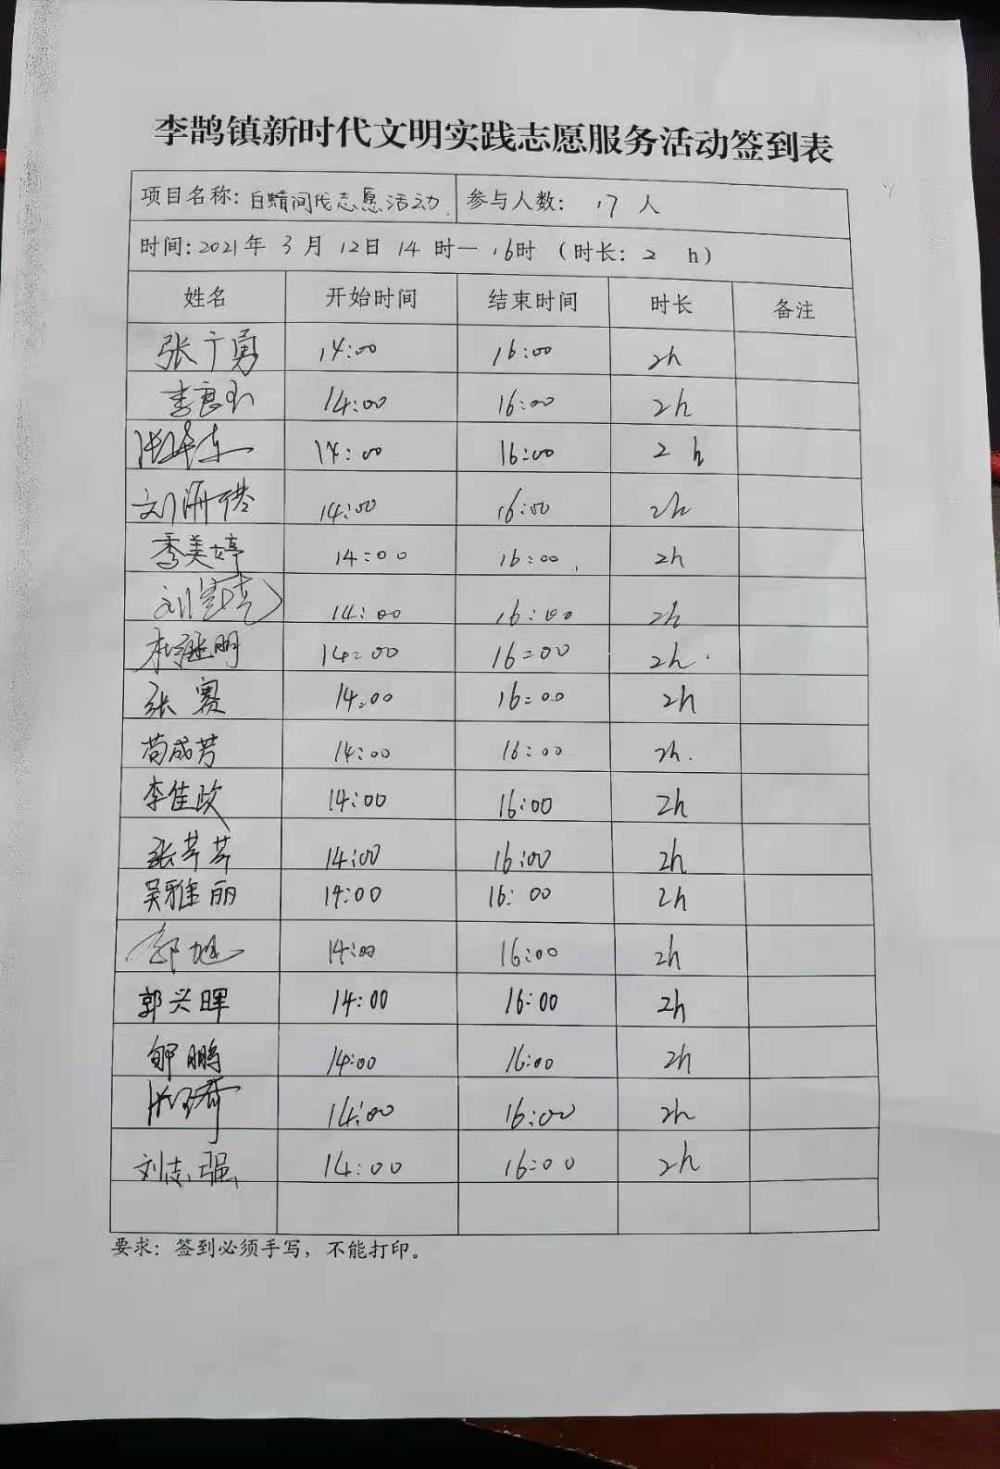 李鹊镇新时代文明实践志愿服务活动签到表
项目名称: 白蜡间伐志愿活动 参与人数: 17 人
时间: 2021 年 3 月 12 日 14 时一 16时 (时长: 2 h)
姓名 开始时间 结束时间 时长 备注
张广勇 14:00 16:00 2h
李良 14:00 16:00 2h
14:00 16:00 2h
刘 14:00 16:00 2h
季美婷 14:00 16:00 2h
刘 14:00 16:00 2h
杜继明 14:00 16:00 2h
张赛 14:00 16:00 2h
苟成芳 14:00 16:00 2h
李佳政 14:00 16:00 2h
张芹芹 14:00 16:00 2h
吴雅丽 14:00 16:00 2h
14:00 16:00 2h
郭兴晖 14:00 16:00 2h
郇鹏 14:00 16:00 2h
14:00 16:00 2h
刘志强 14:00 16:00 2h
要求: 签到必须手写, 不能打印。